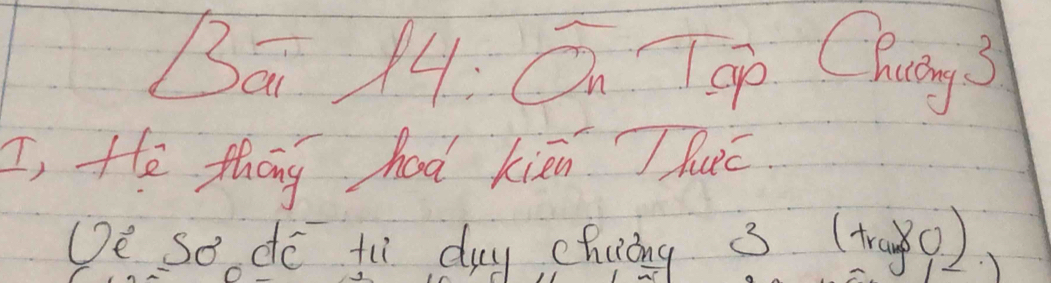 Bài 14: Ôn Tập Chương 3
I, Hệ thống hoá kiến Thức
Vẽ sơ đồ tư duy chương 3 (trang 80)